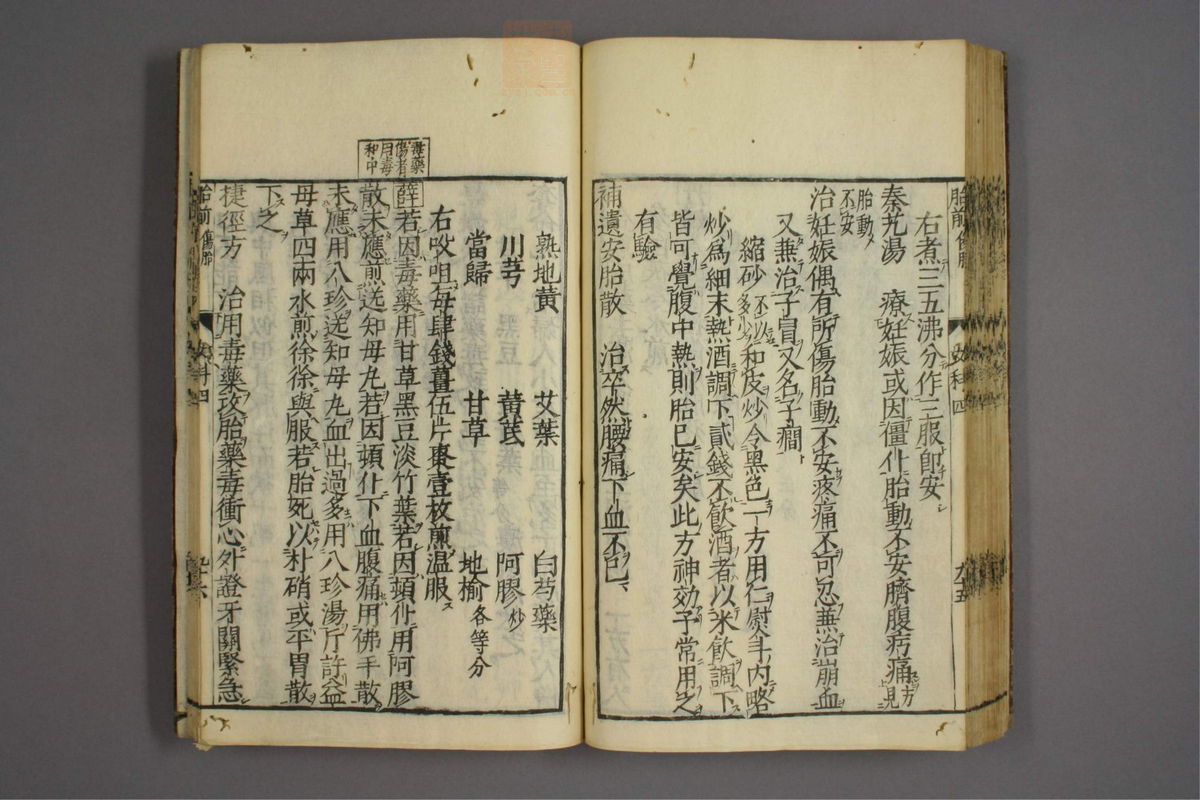 右煮三五沸分作三服即安
秦艽湯 療妊娠或因僵仆胎動不安臍腹㽲痛方見
胎動不安
治妊娠偶有所傷胎動不安疼痛不可忍兼治崩血
又兼治子冒又名子癇
縮砂不以多少和皮炒令黑色一方用仁熨斗內略
炒爲細末熱酒調下貳錢不飲酒者以米飲調下
皆可覺腹中熱則胎已安矣此方神効予常用之
有驗
補遺安胎散 治卒然腰痛下血不已
熟地黃 艾葉 白芍藥
川芎 黃芪 阿膠炒
當歸 甘草 地榆各等分
右㕮咀每肆錢薑伍片棗壹枚煎溫服
毒藥傷者用毒和中
薛若因毒藥用甘草黑豆淡竹葉若因頓仆用阿膠
散未應煎送知母丸若因頓仆下血腹痛用佛手散
未應用八珍送知母丸血出過多用八珍湯斤許益
母草四兩水煎徐徐與服若胎死以朴硝或平胃散
下之
捷徑方 治用毒藥攻胎藥毒衝心外證牙關緊急
胎前 傷胎
女科四